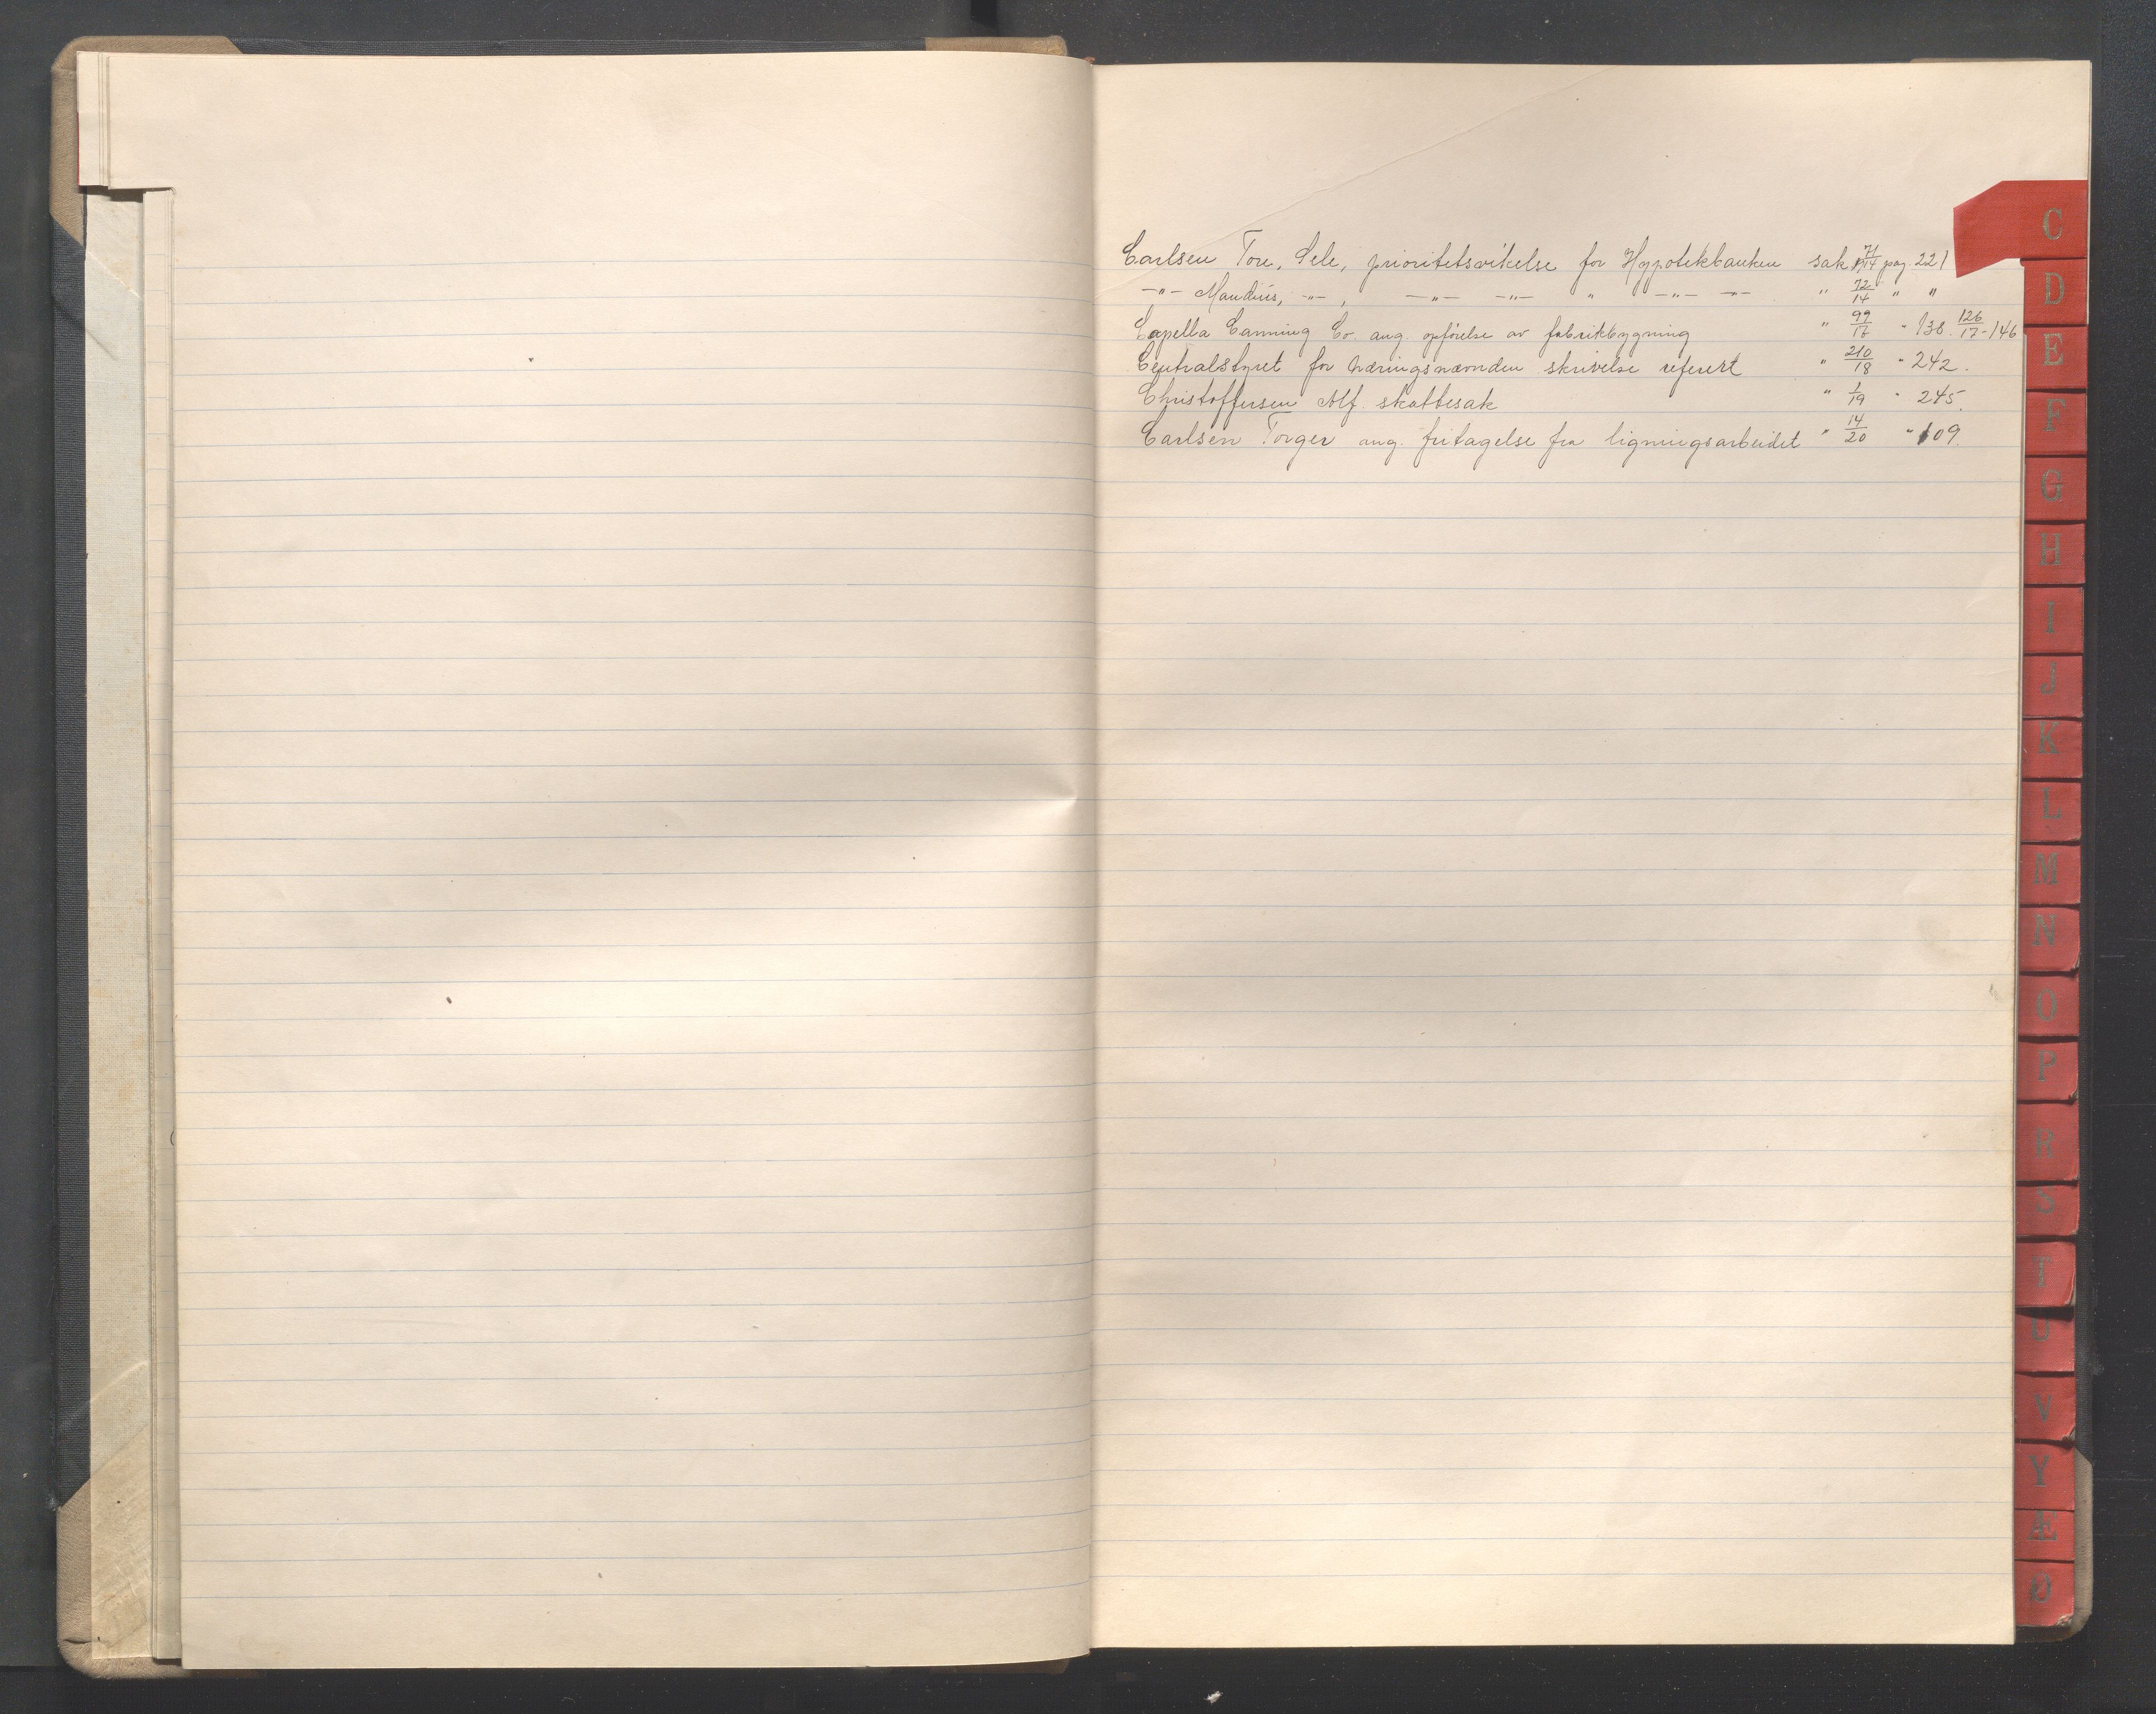 Carlsen Tore, Sele, prioritetsvikelse for Hypotekbanken sak 71/14 pag. 221
-"- Maudius, -"-, -"- -"- " -"- -"- " 72/14 " "
Capella Canning Co. ang. opførelse av fabrikbygning " 99/17 " 138. 126/17-146
Centralstyret for næringsnævnden skrivelse referert " 210/18 " 242.
Christoffersen Alf. skattesak " 1/19 " 245.
Carlsen Torger ang. fritagelse fra ligningsarbeidet " 14/20 " 109.
C
D
E
F
G
H
I
J
K
L
M
N
O
P
R
S
T
U
V
Y
Æ
Ø